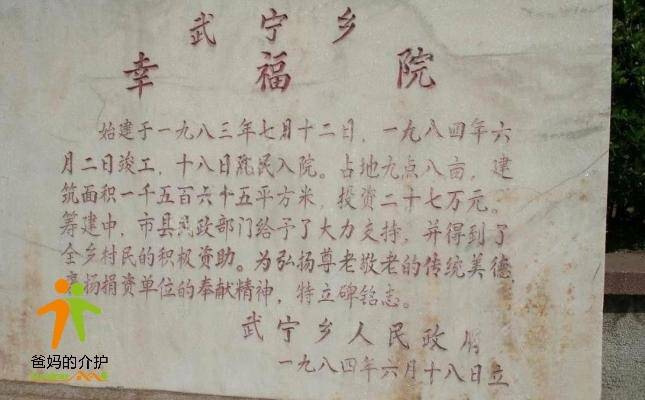 武宁乡
幸福院
始建于一九八三年七月十二日，一九八四年六
月二日竣工，十八日庶民入院。占地九点八亩，建
筑面积一千五百六十五平方米，投资二十七万元。
筹建中，市县民政部门给予了大力支持，并得到了
全乡村民的积极资助。为弘扬尊老敬老的传统美德，
表扬捐资单位的奉献精神，特立碑铭志。
武宁乡人民政府
一九八四年六月十八日立
爸妈的介护